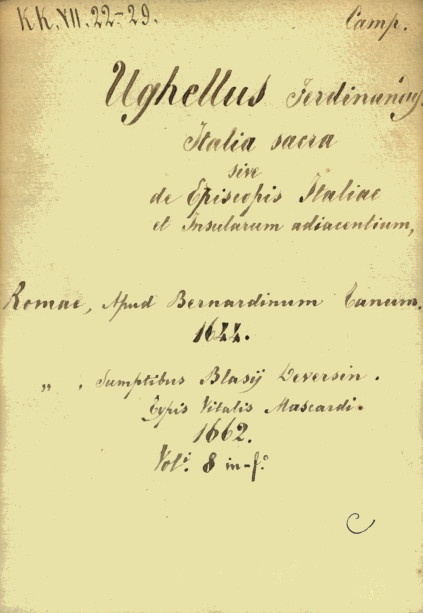 KK.VII.22-29. Camp.
Ughellus Ferdinandus.
Italia sacra
sive
de Episcopis Italiae
et Insularum adiacentium,
Romae, Apud Bernardinum Tanum.
1644.
„ , Sumptibus Blasij Deversin.
Typis Vitalis Mascardi.
1662.
Vol: 8 in-fº
C